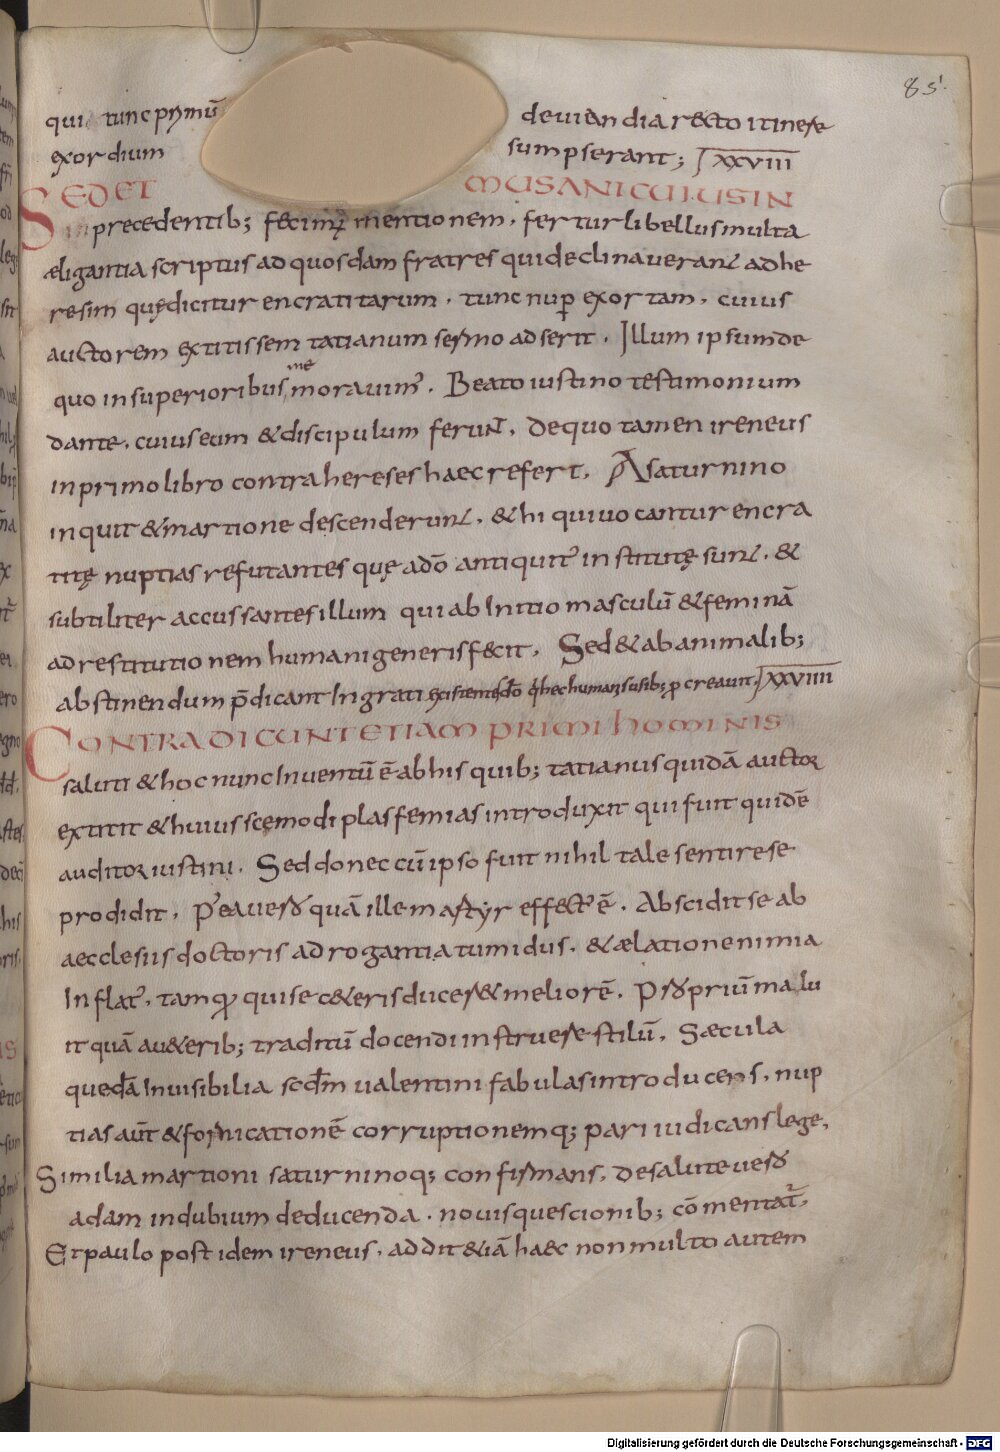 85
qui tunc primū deviandi a recto itinere
exordium sumpserant; XXVIII
SED ET MUSANI CUIUS IN
in precedentib; fecimꝰ mentionem. fertur libellus multa
æligantia scriptus ad quosdam fratres qui declinaverant ad he
resim quę dicitur encratitarum. tunc nuꝑ exortam. cuius
auctorem extitissem tatianum sermo adserit. Illum ipsum de
quo in superioribus memoravimꝰ. Beato iustino testimonium
dante. cuius eum & discipulum ferunt. De quo tamen ireneus
in primo libro contra hereses haec refert. A saturnino
inquit & martione descenderunt. & hi qui vocantur encra
titę nuptias refutantes quę a dō antiquitꝰ institutę sunt. &
subtiliter accussantes illum qui ab initio masculū & feminā
ad restitutionem humani generis fecit. Sed & ab animalib;
abstinendum p̄dicant Ingrati existentes dō qui hec humanis usib; ꝓcreavit. XXVIIII
CONTRADICUNT ETIAM PRIMI HOMINIS
saluti & hoc nunc Inventū ē ab his quib; tatianus quidā auctor
extitit & huiuscęmodi plasfemias introduxit qui fuit quidē
auditor iustini. Sed donec cū ipso fuit nihil tale sentire se
prodidit. Pꝰea vero quā ille martyr effectꝰ ē. Abscidit se ab
aecclesiis doctoris adrogantia tumidus. & ælatione nimia
Inflatꝰ. tamquā qui se ceteris duceret meliorē. Propriū malu
it quā a veterib; traditū docendi instruere stilū. Sæcula
quedā Invisibilia scdm valentini fabulas introducens. nup
tias aūt & fornicationē corruptionemq; pari iudicans lege.
Similia martioni saturninoq; confirmans. de salute vero
adam in dubium deducenda. novis quescionib; cōmentatꝰ.
Et paulo post idem ireneus. addit & iā haec non multo autem
Digitalisierung gefördert durch die Deutsche Forschungsgemeinschaft - DFG